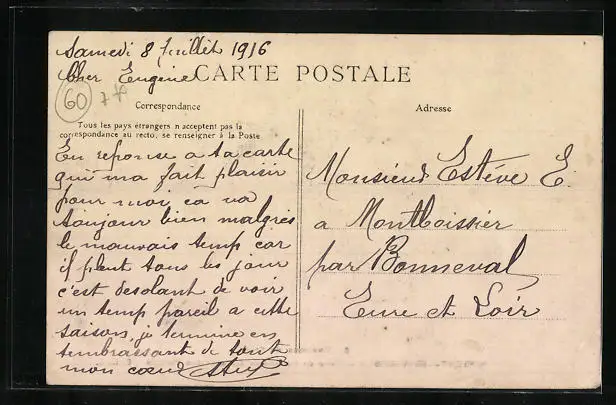 Samedi 8 Juillet 1916
Cher Eugène
CARTE POSTALE
60
7x
Correspondance
Tous les pays étrangers n'acceptent pas la
correspondance au recto, se renseigner à la Poste
En reponse a ta carte
qui ma fait plaisir
pour moi ca va
toujour bien malgres
le mauvais temp car
il pleut tous les jour
c'est desolant de voir
un temp pareil a cette
saison, je termine en
tembrassant de tout
mon cœur
Adresse
Monsieur Estéve E.
a Montboissier
par Bonneval
Eure et Loir